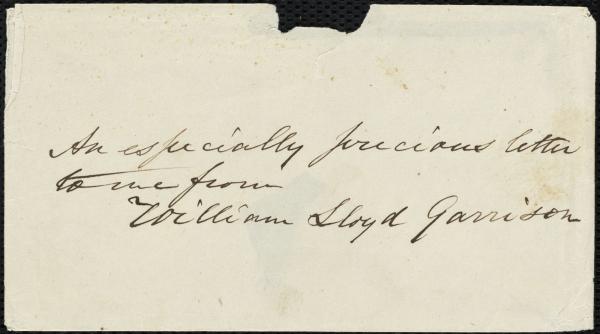 An especially precious letter
to me from
William Lloyd Garrison